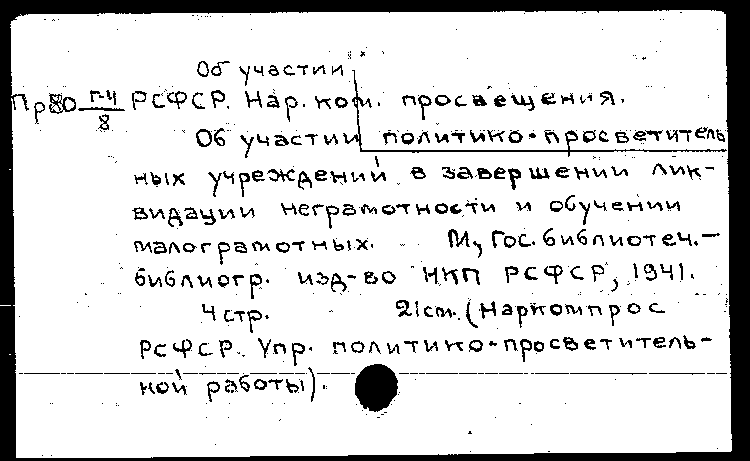 Об участии
Пр80 п-4/8 РСФСР. Нар. ком. просвещения.
Об участии политико-просветитель
ных учреждений в завершении лик-
видации неграмотности и обучении
малограмотных. М, Гос. библиотеч.-
библиогр. изд-во НКП РСФСР, 1941.
4 стр. 21 cm. (Наркомпрос
РСФСР. Упр. политико-просветитель-
ной работы).